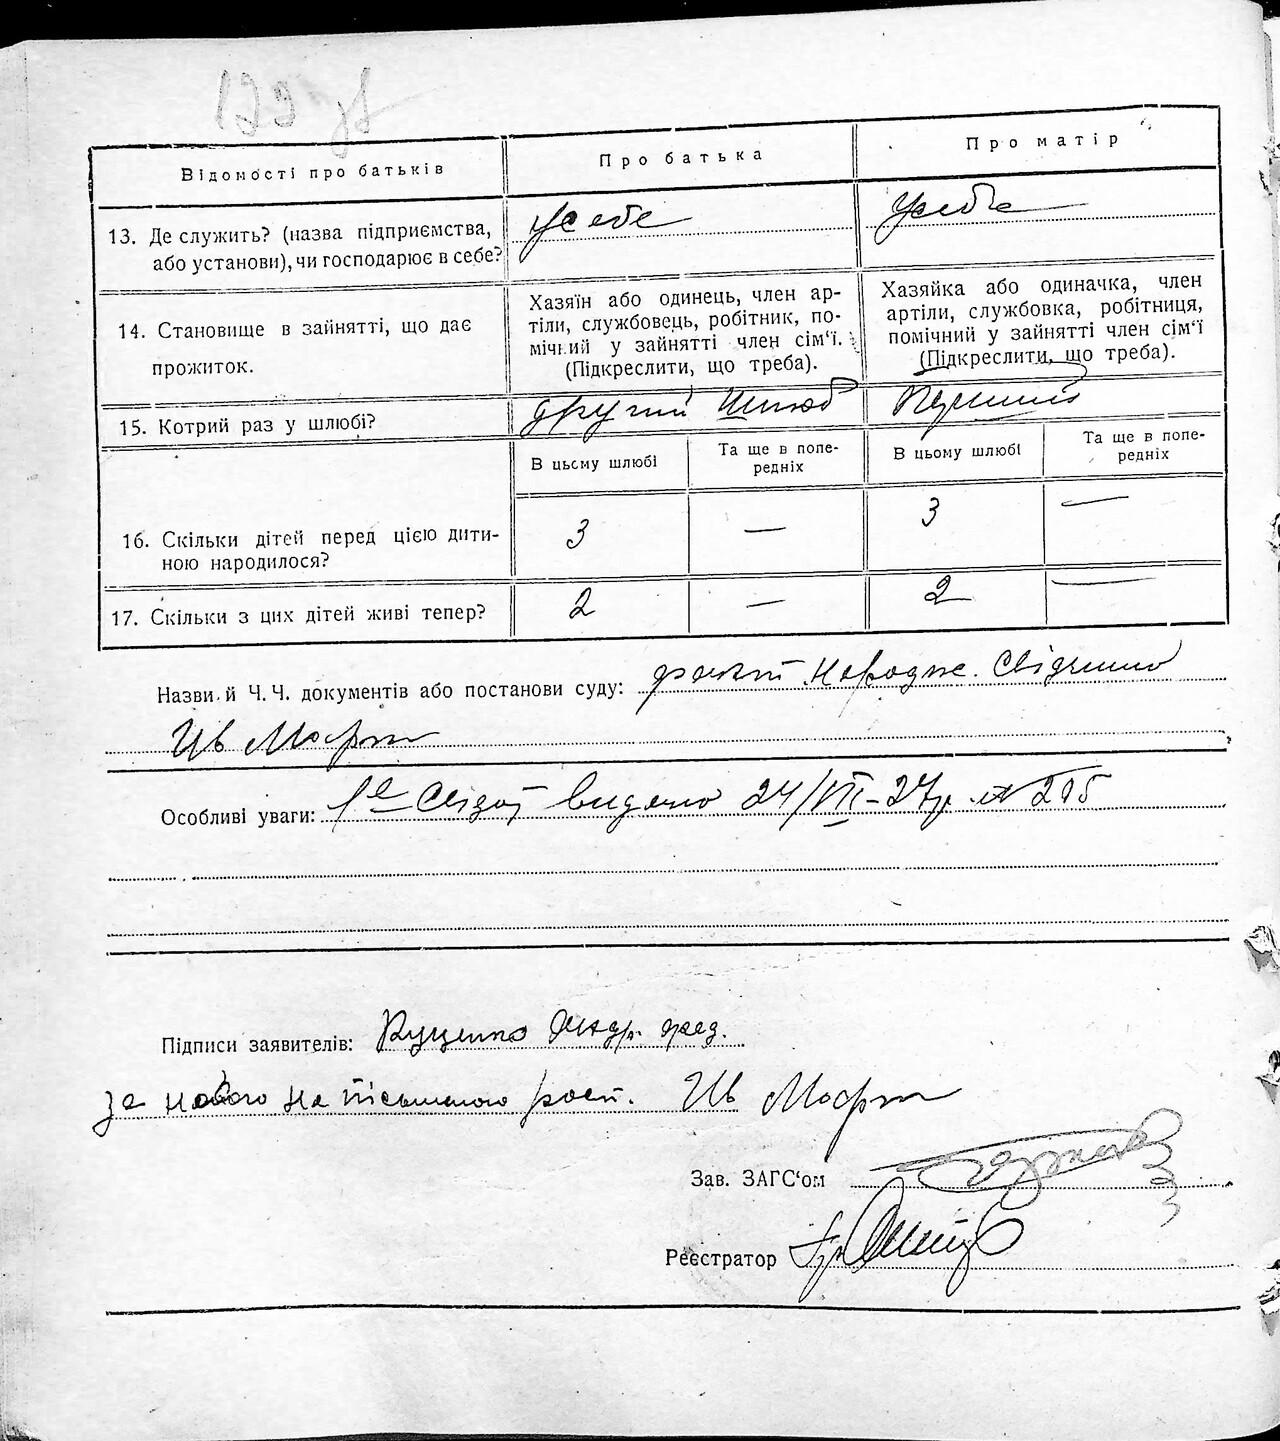 Відомості про батьків
Про батька
Про матір
13. Де служить? (назва підприємства,
або установи), чи господарює в себе?
У себе
У себе
14. Становище в зайнятті, що дає
прожиток.
Хазяїн або одинець, член ар-
тіли, службовець, робітник, по-
мічний у зайнятті член сім'ї.
(Підкреслити, що треба).
Хазяйка або одиначка, член
артіли, службовка, робітниця,
помічний у зайнятті член сім'ї
(Підкреслити, що треба).
15. Котрий раз у шлюбі?
другий шлюб
Перший
В цьому шлюбі
Та ще в попе-
редніх
В цьому шлюбі
Та ще в попе-
редніх
16. Скільки дітей перед цією дити-
ною народилося?
3 — 3 —
17. Скільки з цих дітей живі тепер?
2 — 2 —
Назви й Ч.Ч. документів або постанови суду: факт народж. Свідчимо
Ив
Особливі уваги: видано 24/VII-27р. № 205
Підписи заявителів: Куценко
за на рост. Ив
Зав. ЗАГС'ом
Реєстратор